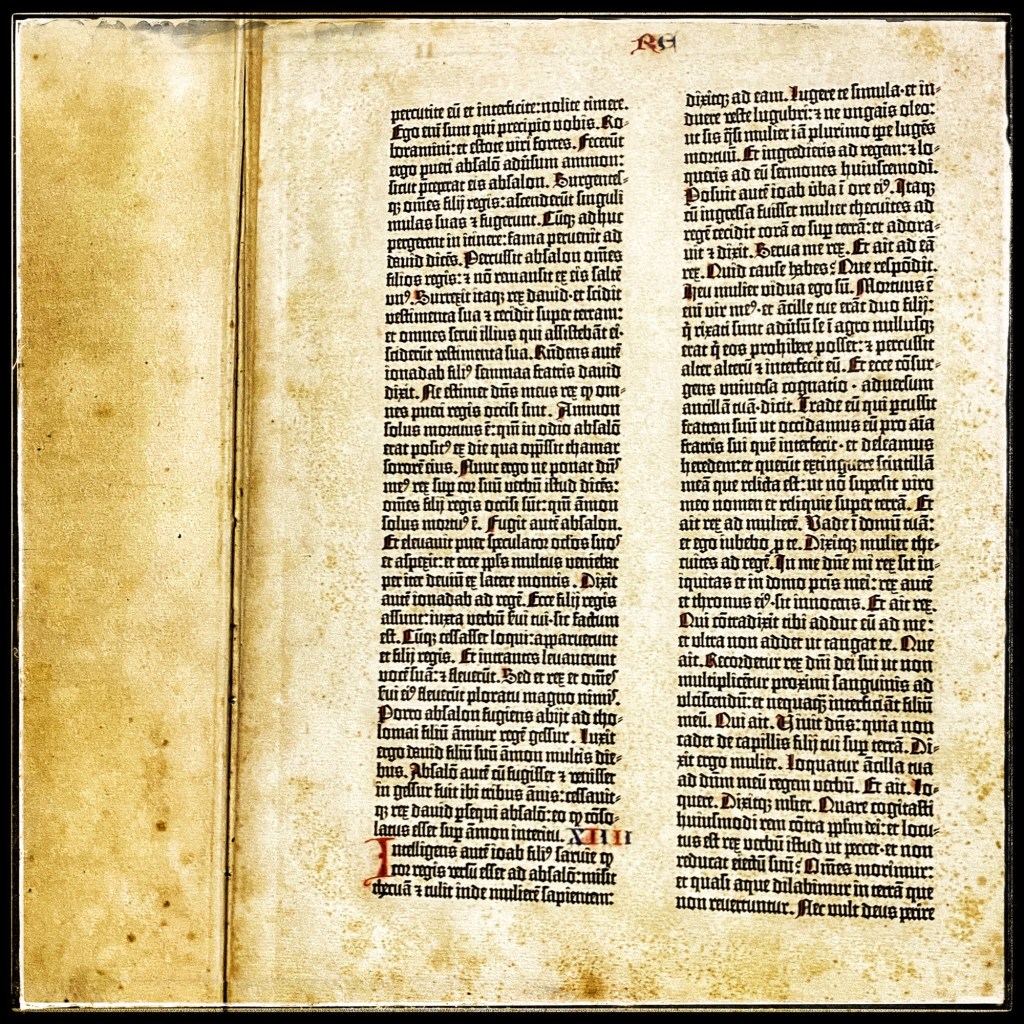 RE
percutite eū et interficite: nolite timere.
Ego enī sum qui precipio vobis. Ro-
boramini: et estote viri fortes. Fecerūt
ergo pueri absalō adūsum ammon:
sicut p̄ceperat eis absalon. Surgentes-
qꝫ om̄es filij regis: ascenderūt singuli
mulas suas ⁊ fugerunt. Cūqꝫ adhuc
pergerent in itinere: fama peruenit ad
dauid dicēs. Percussit absalon om̄es
filios regis: ⁊ nō remansit ex eis saltē
vnꝰ. Surrexit itaqꝫ rex dauid· et scidit
vestimenta sua ⁊ cecidit super terram:
et omnes serui illius qui assistebāt ei·
sciderūt vestimenta sua. Rn̄dens autē
ionadab filiꝰ semmaa fratris dauid
dixit. Ne estimet dn̄s meus rex ꝙ om-
nes pueri regis occisi sint. Ammon
solus mortuus ē: qm̄ in odio absalō
erat positꝰ ex die qua opp̄ssit thamar
sororē eius. Nunc ergo ne ponat dn̄s
meꝰ rex sup cor suū verbū istud dicēs:
om̄es filij regis occisi sūt: qm̄ āmon
solus mortuꝰ ē. Fugit autē absalon.
Et eleuauit puer speculator oc̄los suos
et aspexit: et ecce pp̄ls multus veniebat
per iter deuiū ex latere montis. Dixit
autē ionadab ad regē. Ecce filij regis
assunt: iuxta verbū s̄ui tui· sic factum
est. Cūqꝫ cessasset loqui: apparuerunt
et filij regis. Et intrantes leuauerunt
vocē suā: ⁊ fleuerūt. Sed et rex et om̄es
s̄ui eiꝰ fleuerūt ploratu magno nimis.
Porro absalon fugiens abijt ad tho-
lomai filiū āmiur regē gessur. Luxit
ergo dauid filiū suū āmon multis die-
bus. Absalō autē cū fugisset ⁊ venisset
in gessur fuit ibi tribus ānis: cessauit-
qꝫ rex dauid ꝑsequi absalō: eo ꝙ cōso-
latus esset sup āmon interitu. XIIII
Intelligens autē ioab filiꝰ saruie ꝙ
cor regis versū esset ad absalō: misit
thecuā ⁊ tulit inde mulierē sapientem:
dixitqꝫ ad eam. Lugere te simula· et in-
duere veste lugubri: ⁊ ne vngaris oleo:
ut sis q̄si mulier iā plurimo tp̄e lugēs
mortuū. Et ingredieris ad regem: ⁊ lo-
queris ad eū sermones huiuscemodi.
Posuit autē ioab v̄ba ī ore eiꝰ. Itaqꝫ
cū ingressa fuisset mulier thecuites ad
regē cecidit corā eo sup terrā: et adora-
uit ⁊ dixit. Serua me rex. Et ait ad eā
rex. Quid cause habes? Que respōdit.
Heu mulier vidua ego sū. Mortuus ē
enī vir meꝰ· et ācille tue erāt duo filij:
q̄ rixati sunt adūsū se ī agro nullusqꝫ
erat q̄ eos prohibere posset: ⁊ percussit
alter alterū ⁊ interfecit eū. Et ecce cōsur-
gens vniuersa cognatio · aduersum
ancillā tuā· dicit. Trade eū qui ꝑcussit
fratrem suū ut occidamus eū pro aīa
fratris sui quē interfecit· et deleamus
heredem: et querūt extinguere scintillā
meā que relicta est: ut nō supersit viro
meo nomen et reliquie super terrā. Et
ait rex ad mulierē. Vade ī domū tuā:
et ego iubebo ꝓ te. Dixitqꝫ mulier the-
cuites ad regē. In me dn̄e mi rex sit in-
iquitas et in domo pr̄is mei: rex autē
et thronus eiꝰ· sit innocens. Et ait rex.
Qui cōtradixit tibi adduc eū ad me:
et ultra non addet ut tangat te. Que
ait. Recordetur rex dn̄i dei sui ut non
multiplicētur proximi sanguinis ad
vlciscendū: et nequaqꝫ interficiāt filiū
meū. Qui ait. Viuit dn̄s: quia non
cadet de capillis filij tui sup terrā. Di-
xit ergo mulier. Loquatur ācilla tua
ad dn̄m meū regem verbū. Et ait. Lo-
quere. Dixitqꝫ ml̄ier. Quare cogitasti
huiusmodi rem cōtra pp̄lm dei: et locu-
tus est rex verbū istud ut peccet· et non
reducat eiectū suū? Om̄es morimur:
et quasi aque dilabimur in terrā que
non reuertuntur. Nec vult deus ꝑire